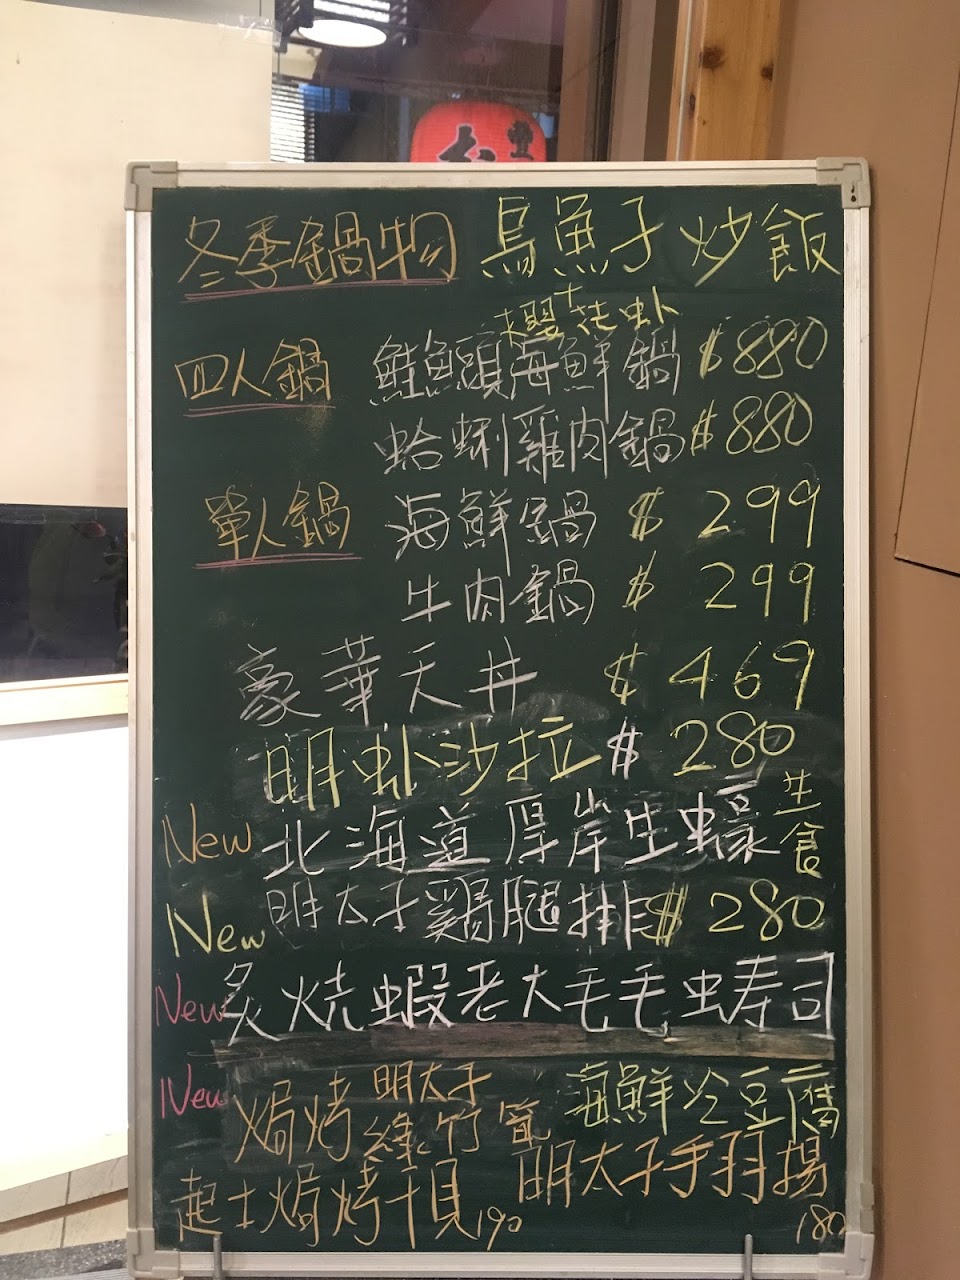 冬季鍋物 烏魚子 炒飯
+
櫻花虾
四人鍋 鮭魚頭海鮮鍋 $880
蛤蜊雞肉鍋 $880
單人鍋 海鮮鍋 $ 299
牛肉鍋 $ 299
豪華天丼 $ 469
明虾沙拉 $ 280
New 北海道厚岸生蠔 生食
New 明太子鷄腿排 $ 280
New 炙燒蝦老大毛毛虫寿司
New 焗烤明太子綠竹筍 海鮮冷豆腐
明太子手羽揚 180
起士焗烤干貝 190